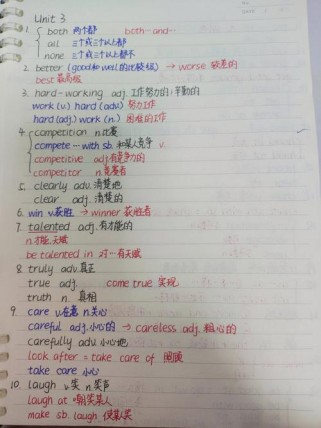 Unit 3
1. both 两个都 both…and…
all 三个或三个以上都
none 三个或三个以上都不
2. better (good和well的比较级) → worse 较差的
best 最高级
3. hard-working adj. 工作努力的;辛勤的
work (v.) hard (adv.) 努力工作
hard (adj.) work (n.) 困难的工作
4. competition n.比赛
compete…with sb. 和某人竞争 v.
competitive adj.有竞争力的
competitor n.竞赛者
5. clearly adv.清楚地
clear adj.清楚的
6. win v.获胜 → winner 获胜者
7. talented adj.有才能的
n.才能,天赋
be talented in 对…有天赋
8. truly adv.真正
true adj. come true 实现
truth n. 真相
9. care v.在意 n.关心
careful adj.小心的 → careless adj.粗心的
carefully adv.小心地
look after = take care of 照顾
take care 小心
10. laugh v.笑 n.笑声
laugh at 嘲笑某人
make sb. laugh 使某人笑